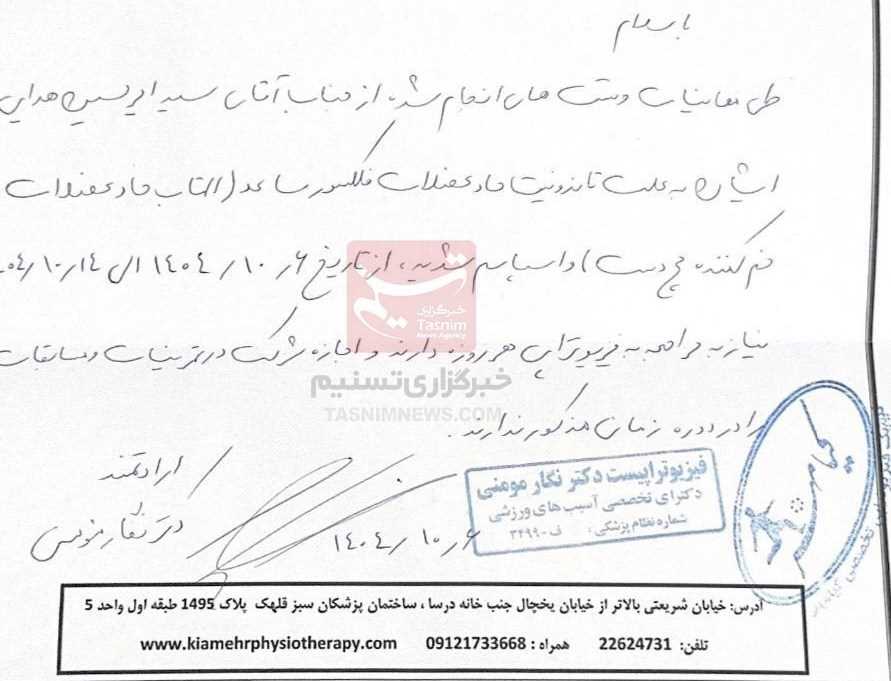 با سلام
طی معاینات و تست های انجام شده از جناب آقای سید ابوالحسن هدایی
ایشان به علت تاندونیت حاد عضلات فلکسور ساعد (التهاب حاد عضلات
خم کننده مچ دست) و اسپاسم شدید، از تاریخ ۱۴۰۴/۱۰/۶ الی ۱۴۰۴/۱۰/۱۴
نیاز به مراجعه به فیزیوتراپی هر روزه دارند و اجازه شرکت در تمرینات و مسابقات
را در دوره زمان مذکور ندارند.
خبرگزاری
Tasnim
News Agency
خبرگزاری تسنیم
TASNIMNEWS.COM
ارادتمند
دکتر نگار مومنی
۱۴۰۴/۱۰/۶
فیزیوتراپیست دکتر نگار مومنی
دکترای تخصصی آسیب های ورزشی
شماره نظام پزشکی: ف-۳۴۹۹
کیامهر
آدرس: خیابان شریعتی بالاتر از خیابان یخچال جنب خانه درسا ، ساختمان پزشکان سبز قلهک پلاک 1495 طبقه اول واحد 5
تلفن: 22624731 همراه : 09121733668 www.kiamehrphysiotherapy.com